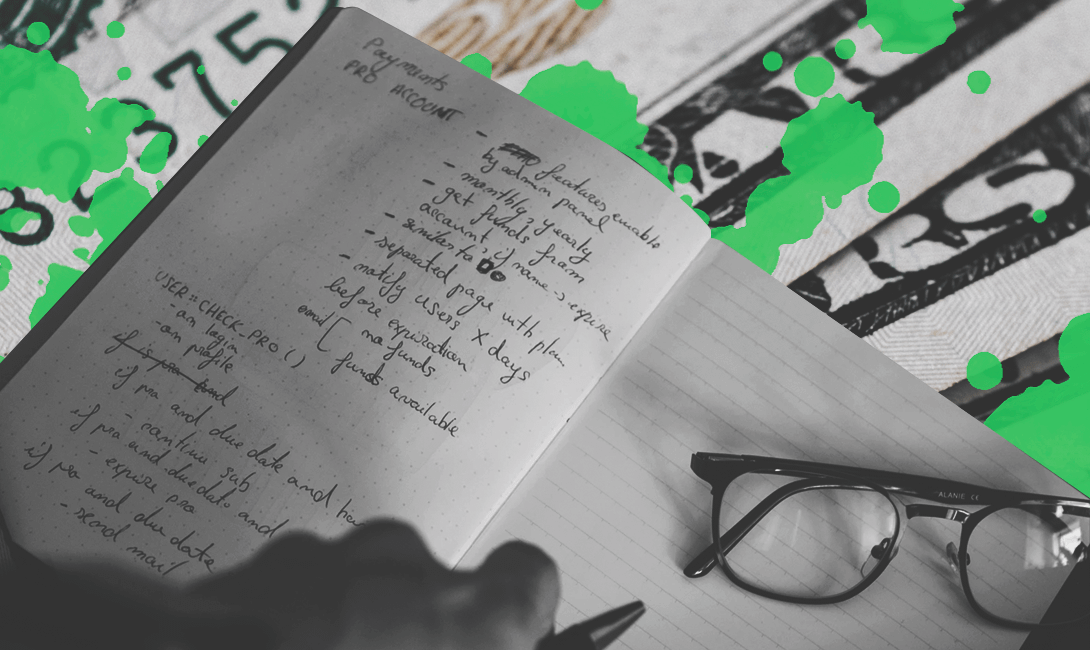 Payments
PRO ACCOUNT
- features enable
by admin panel
- monthly, yearly
- get funds from
account, if none -> expire
- similar to
- separated page with plan
- notify users X days
before expiration
email [ no funds
funds available
USER::CHECK_PRO()
- on login
- on profile
if is pro and
if pro and due date and
- continue sub
if pro and due date and
- expire pro
if pro and due date
- send mail
752
ALANIE CE